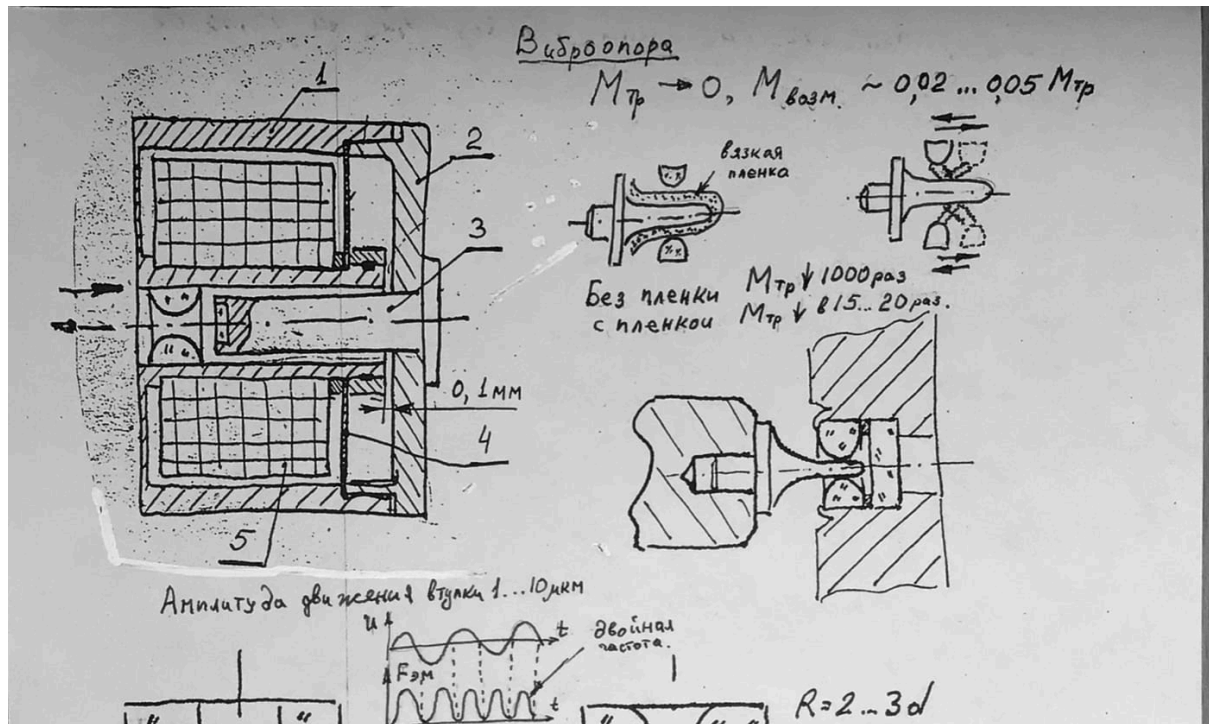 Виброопора
Mтр → 0, Mвозм. ~ 0,02 ... 0,05 Mтр
1
2
3
вязкая
пленка
Без пленки Mтр ↓ 1000 раз
с пленкой Mтр ↓ в 15... 20 раз.
0,1мм
4
5
Амплитуда движения втулки 1...10мкм
u
t
двойная
частота.
Fэм
t
R=2...3d